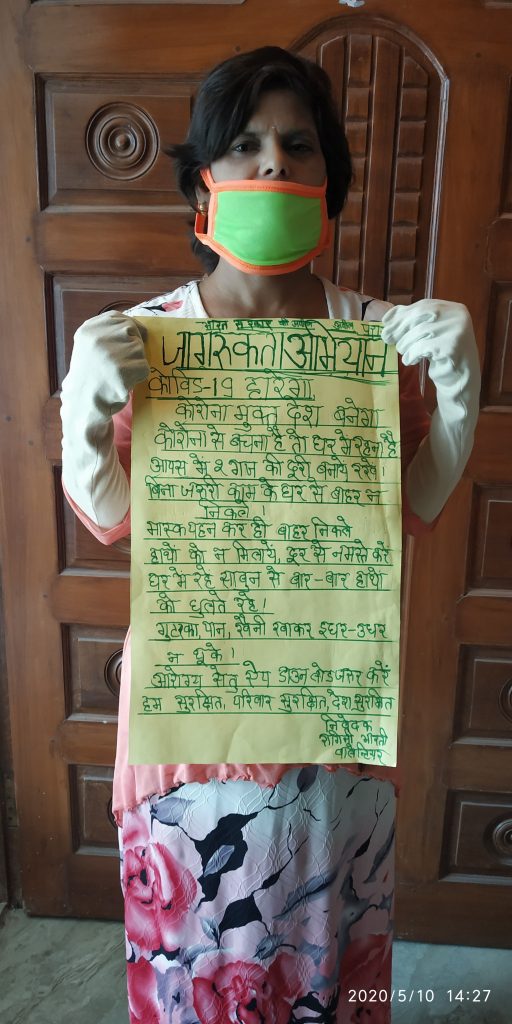 भारत सरकार की
जागरुकता अभियान
कोविड-19 हारेगा
कोरोना मुक्त देश बनेगा
कोरोना से बचना है तो घर मे रहना है
आपस मे २ गज की दुरी बनाये रखे।
बिना जरुरी काम के घर से बाहर न
निकले।
मास्क पहन कर ही बाहर निकले
हाथो को न मिलाये, दूर से नमस्ते करे
घर मे रहे साबुन से बार-बार हाथो
को धुलते रहे।
गुटखा, पान, खैनी खाकर इधर-उधर
न थूके।
आरोग्य सेतु ऐप डाउनलोड जरुर करें
हम सुरक्षित, परिवार सुरक्षित, देश सुरक्षित
निवेदक
भारती
2020/5/10 14:27